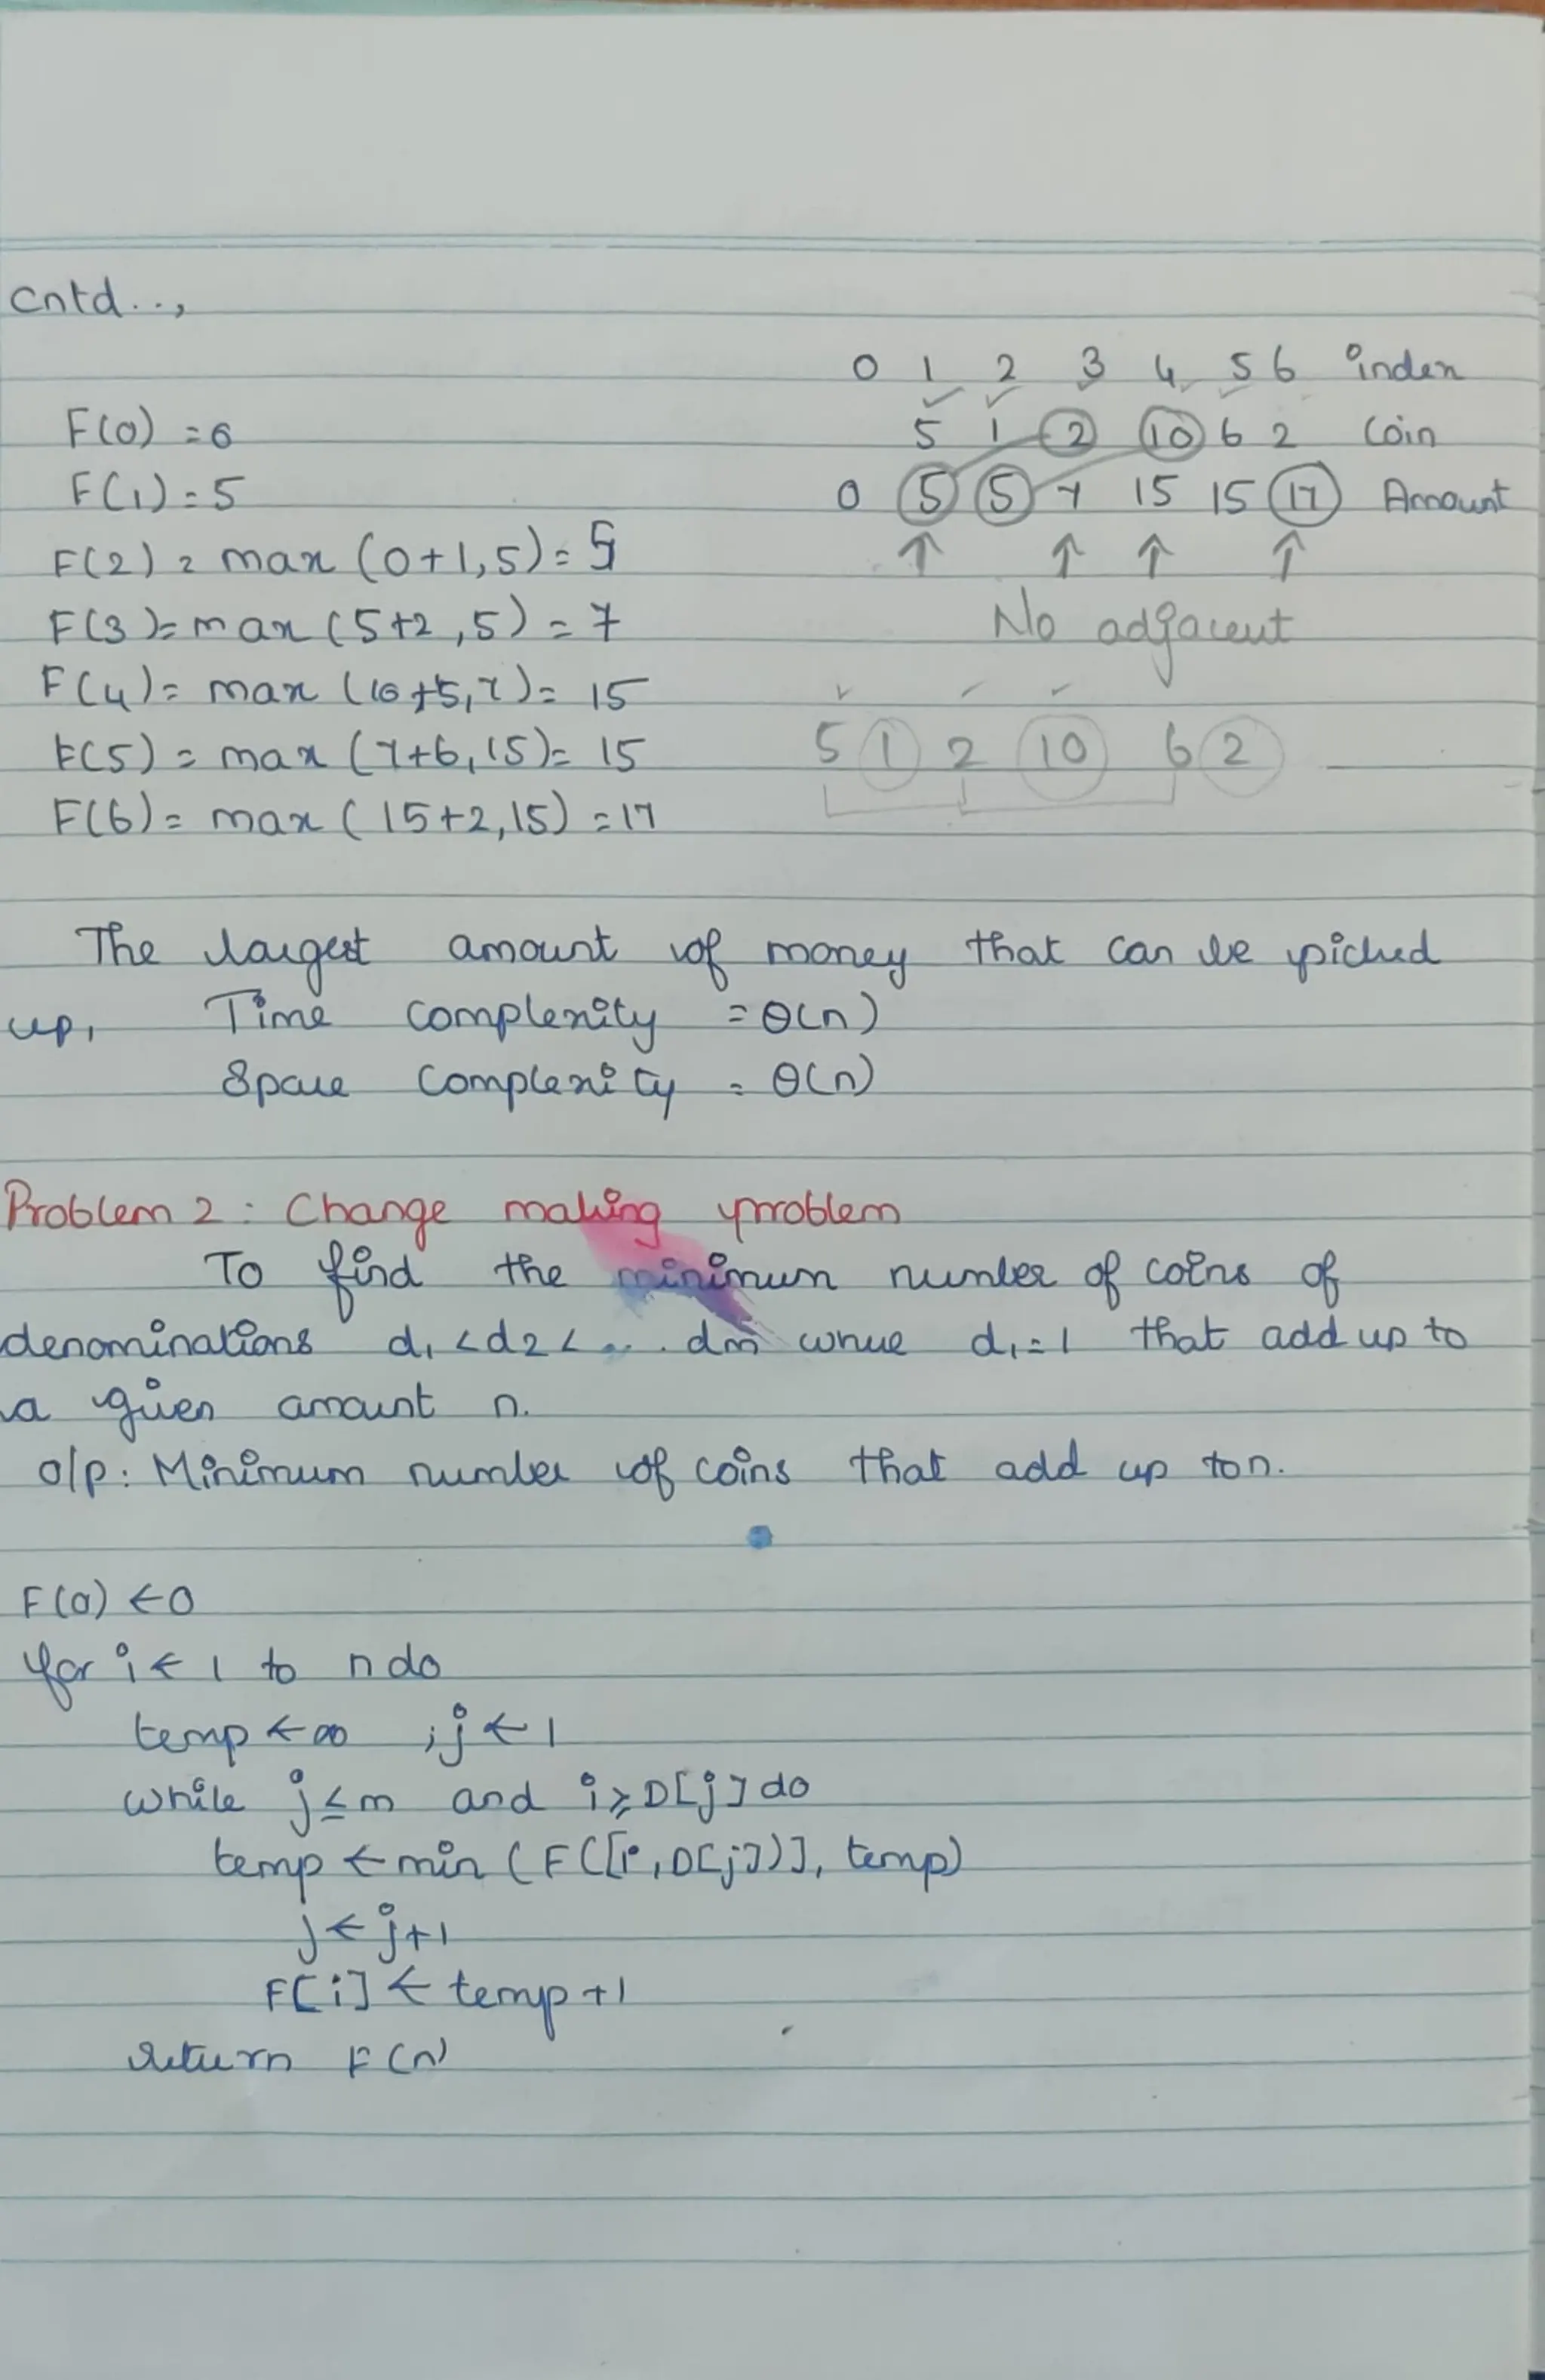 Cntd..,
0 1 2 3 4 5 6 index
F(0) = 0
5 1 2 10 6 2 Coin
F(1) = 5
0 5 5 7 15 15 17 Amount
F(2) = max (0+1,5) = 5
F(3) = max (5+2,5) = 7
No adjacent
F(4) = max (10+5,7) = 15
F(5) = max (7+6,15) = 15
5 1 2 10 6 2
F(6) = max (15+2,15) = 17
The largest amount of money that can be picked
up, Time complexity = θ(n)
Space complexity = θ(n)
Problem 2: Change making problem
To find the minimum number of coins of
denominations d1 < d2 < ... dm where d1 = 1 that add up to
a given amount n.
o/p: Minimum number of coins that add up to n.
F(0) ← 0
for i ← 1 to n do
temp ← ∞ ; j ← 1
while j ≤ m and i ≥ D[j] do
temp ← min (F([i, D[j])], temp)
j ← j+1
F[i] ← temp + 1
return F(n)